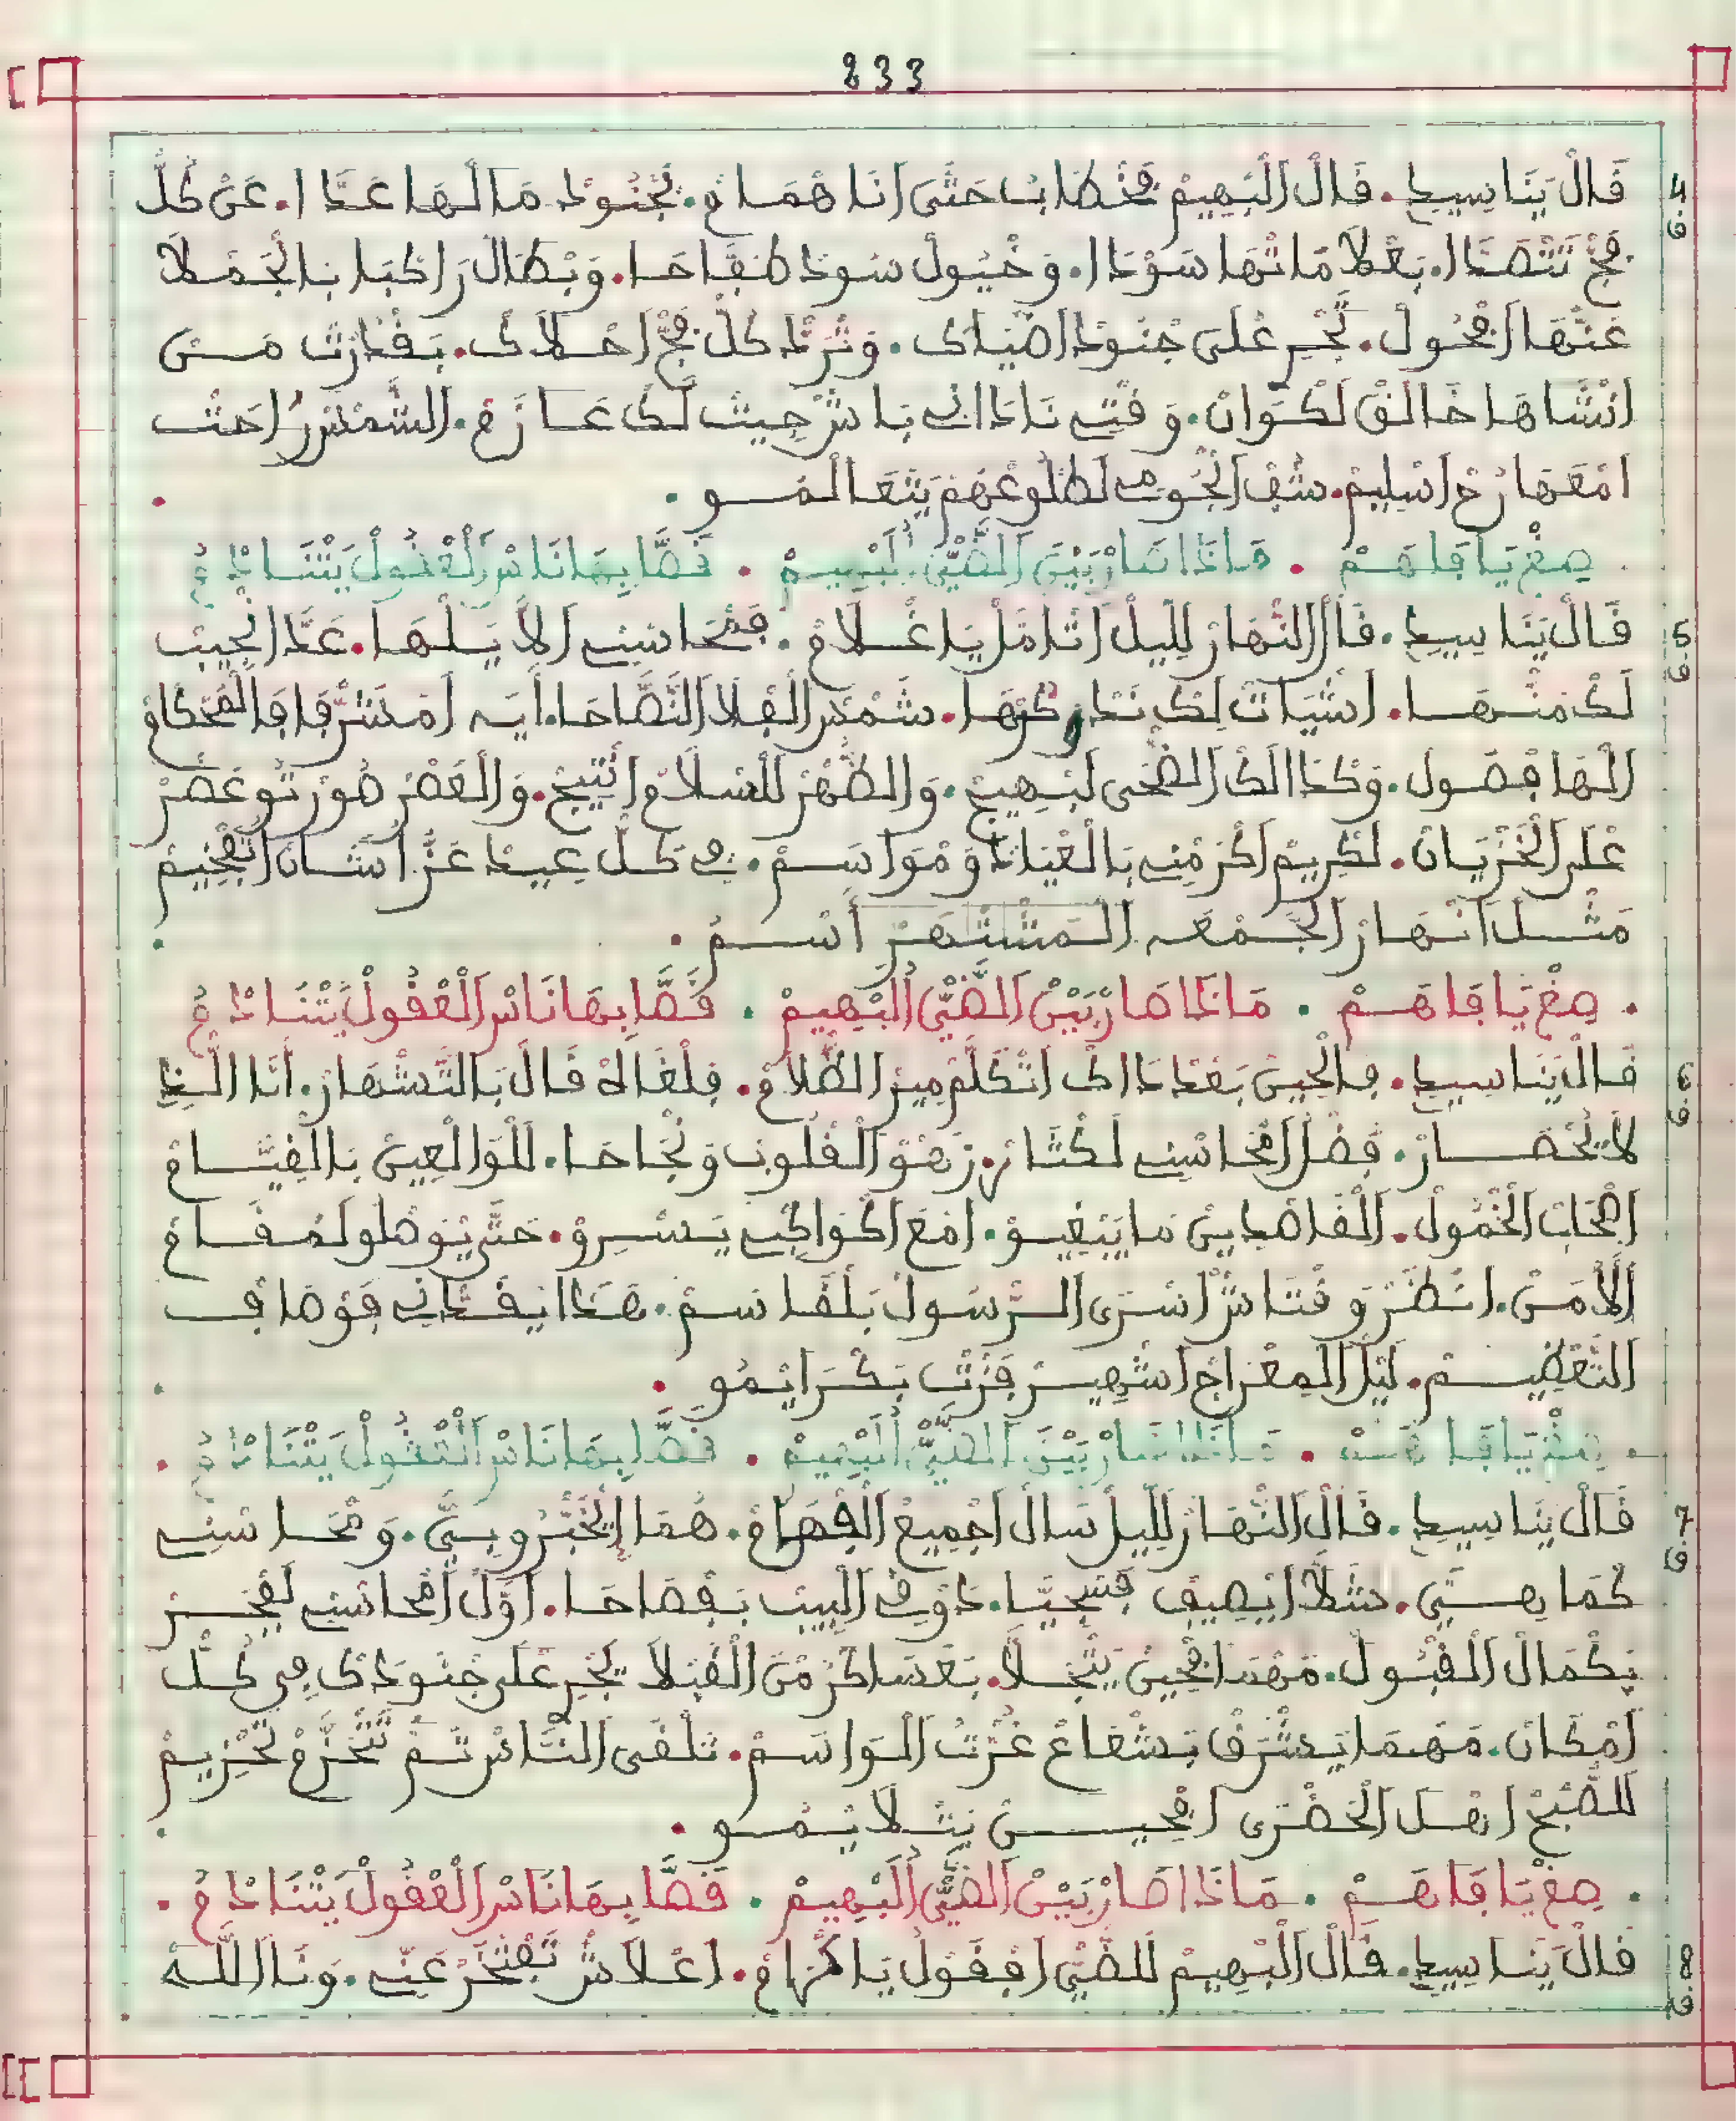 833
4 قَالْ يَنَا سِيدِ. قَالْ اَلْبْهِيمْ فَخْطَابْ حَتَّى اَنَا هْمَامْ. بَجْنُودْ مَا لْهَا عَدَّا. عَنْ كُلّْ
فَجّْ تَتْصَدَّا. بَعْلَامَاتْهَا سَوْدَا. وَخْيُولْ سُودْ طَفَّاحَا. وَبْطَالْ رَاكْبَا بَالْجَمْلَا
عَنْهَا اَفْحُولْ. تَجْرِ عْلَى جْنُودْ اَضْيَاكْ. وَتْرَدّْ كُلّْ فَجّْ اَحْلَاكْ. بَقْدَرْتْ مَنْ
اَنْشَاهَا خَالَقْ لَكْوَانْ. وَقْتِ نَادَانِي بَاشْ جِيتْ لَكْ عَازَمْ. اَلشَّمْسْ رُاحَتْ
اَمْعَهَا رُحْ اَسْلِيمْ. شُفْ اَنْجُومِ لَطْلُوعْهُمْ يَتْعَالْمُو.
صِغْ يَا فَاهَمْ. مَاذَا صَارْ بَيْنْ اَلضَّيّْ اُلَبْهِيمْ. قَصَّا بِهَا نَاسْ اَلْعْقُولْ يَتْنَادْمُ
5 قَالْ يَنَا سِيدِ. قَالْ اَلنّْهَارْ لَلِّيلْ اَتَّامَلْ يَا غْلَامْ. فَمْحَاسْنِي اَلَا يَلْهَا. عَدَّا نْجِيبْ
لَكْ مَنْهَا. اَشْيَاتْ لِكْ نَدْرَكْهَا. شَمْسْ اَلْفْلَا اَلنَّضَّاحَا. أَيَه اَمْشَرْفَا فَالْمَحْكَامْ
اَلْهَا فْصُولْ. وَكْدَالَكْ اَلضّْحَى لَبْهِيجْ. وَالظُّهْرْ لَلسْلَامْ اَنْتِيجْ. وَالْعَصْرْ هُوَ رْتُو عَصْرْ
عْلَى اَلْخَزْيَانْ. لَكْرِيمْ اَكْرَمْنِي بَالْعْيَادْ وَمْوَاسَمْ. فِي كُلّْ عِيدْ عَزّْ اَشَّانْ اَتْفْخِيمْ
مَثْلْ اَنْهَارْ اَلْجَمْعَه اَلْمَشْتْهَرْ أَسْمُ.
صِغْ يَا فَاهَمْ. مَاذَا صَارْ بَيْنْ اَلضَّيّْ اُلَبْهِيمْ. قَصَّا بِهَا نَاسْ اَلْعْقُولْ يَتْنَادْمُ
6 قَالْ يَنَا سِيدِ. فِالْحِينْ بَعْدْ دَاكْ اَتْكَلَّمْ مِيرْ اَلظّْلَامْ. فِلْغَاهْ قَالْ بَالتَّشْهَارْ. أَنَا اَلَّذِي
لَا نَحْصَارْ. فِضْلْ اَمْحَاسْنِي لَكْثَارْ. زَهْوْ اَلْقْلُوبْ وَنْجَاحَا. لَلْوَالْعِينْ بَالْفِيَّامْ
اَصْحَابْ اَلْخْمُولْ. اَلْقَاصْدِينْ مَا يَبْغِيوْ. اَمْعَ اَكْوَاكِبِ يَسْرِوْ. حَتَّى يَوْصْلُو لَمْقَامْ
اَلَّامَنْ. اَنْظَرْ وَقْتَاشْ اَسْرَى اَلرَّسُولْ بَلْقَاسَمْ. هَدَا يَقْدَانِي فَوْصَافْ
اَلتَّعْظِيمْ. لَيْلْ اَلْمِعْرَاجْ اَشْهِيرْ فَزْتْ بَكْرَايْمُو.
صِغْ يَا فَاهَمْ. مَاذَا صَارْ بَيْنْ اَلضَّيّْ اُلَبْهِيمْ. قَصَّا بِهَا نَاسْ اَلْعْقُولْ يَتْنَادْمُ.
7 قَالْ يَنَا سِيدِ. قَالْ اَلنّْهَارْ لَلِّيلْ سَالْ اَجْمِيعْ اَلْفْهَامْ. هُمَا اِيخَبْرُو بِيَّ. وَمْحَاسْنِي
كْمَا هِيَّ. شَلَّا اَيْصِيفْ فَسْجِيَّا. ذُو فِ اَلْبِيتْ بَفْصَاحَا. اَوَّلْ اَمْحَاسْنِي لَفْجَرْ
بَكْمَالْ اَلْقْبُولْ. مَهْمَا اَفْحِينْ يَتْجَلَّا. بَعْسَاكَرْ مْنْ اَلْقَبْلَا يَجْرِ عْلَى جْنُودَكْ فِي كُلّْ
اَمْكَانْ. مَهْمَا يَشْرَقْ بَشْعَاعْ غُرّْتُ اَلْمَوَاسَمْ. تَلْقَى اَلنَّاسْ تَمّْ تَتْحَزَّمْ تَحْزِيمْ
لَلصّْبْحْ اَهْلْ اَلْحَضْرَى اَفْحِينْ يَتْلَايْمُو.
صِغْ يَا فَاهَمْ. مَاذَا صَارْ بَيْنْ اَلضَّيّْ اُلَبْهِيمْ. قَصَّا بِهَا نَاسْ اَلْعْقُولْ يَتْنَادْمُ.
8 قَالْ يَنَا سِيدِ. قَالْ اَلْبْهِيمْ لَلضَّيّْ اَفْقُولْ يَا كْرَامْ. اَعْلَاشْ تَفْتَخَرْ عَنِّي. وَنَا اَللَّهْ